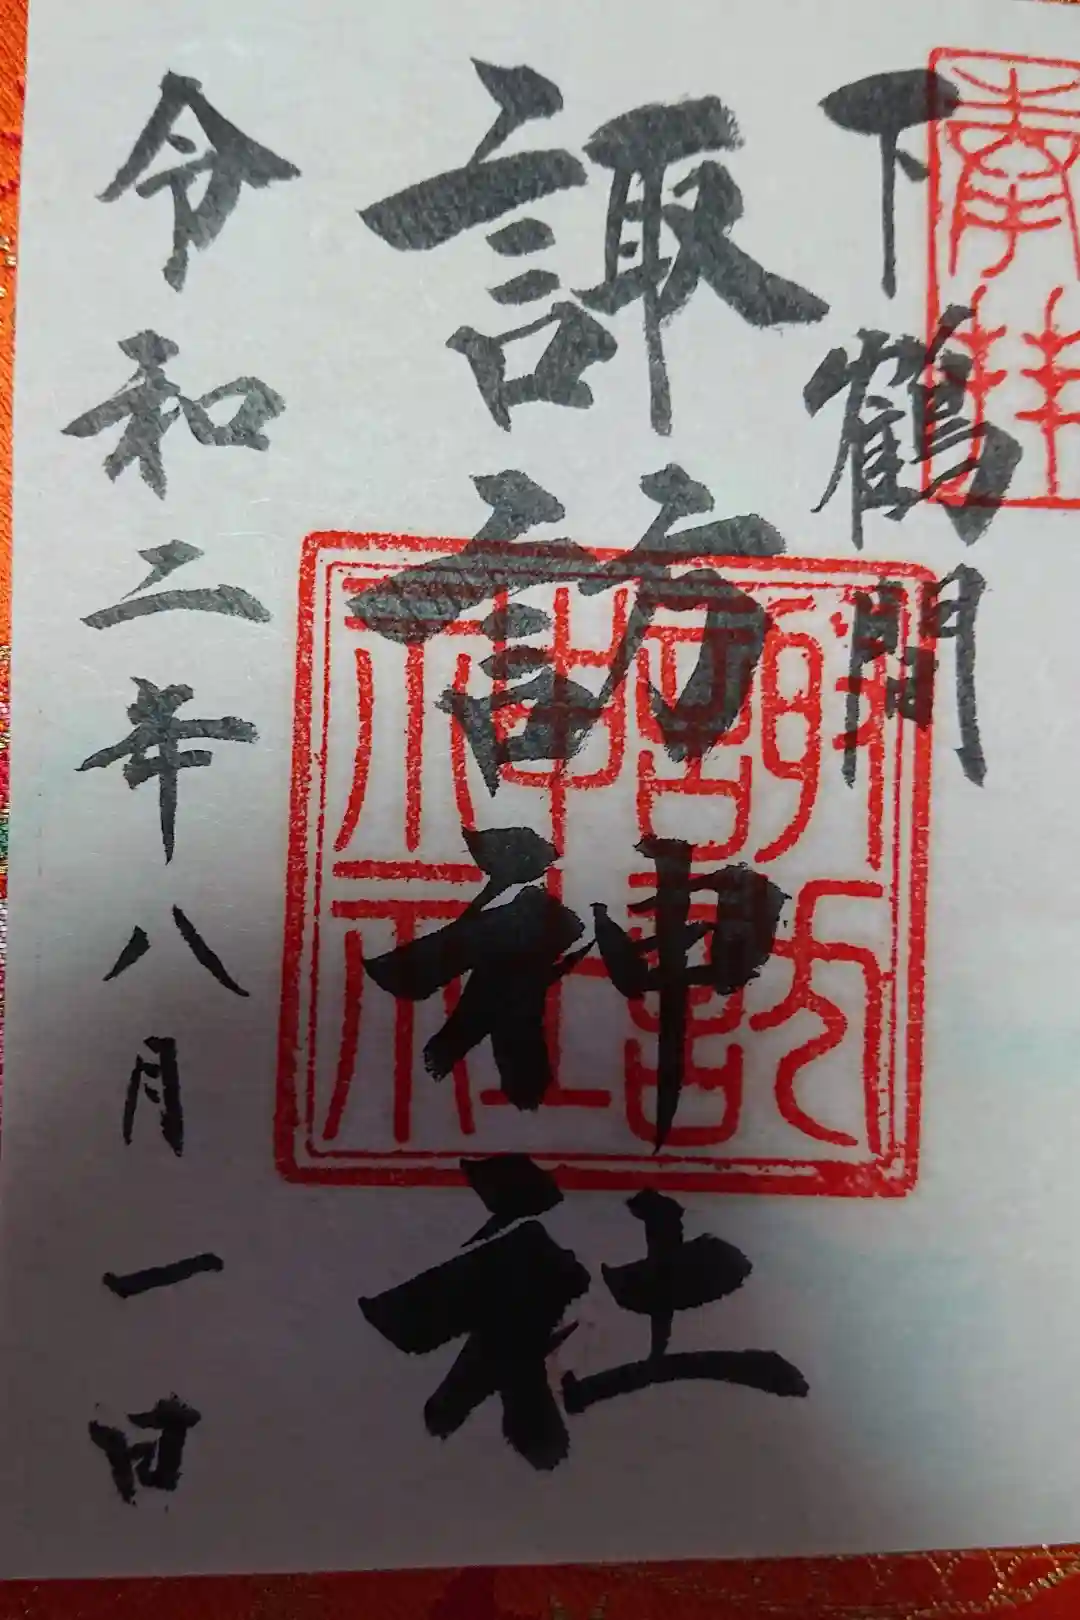 奉拝
下鶴間
諏訪神社
諏訪宮神社
令和二年八月一日